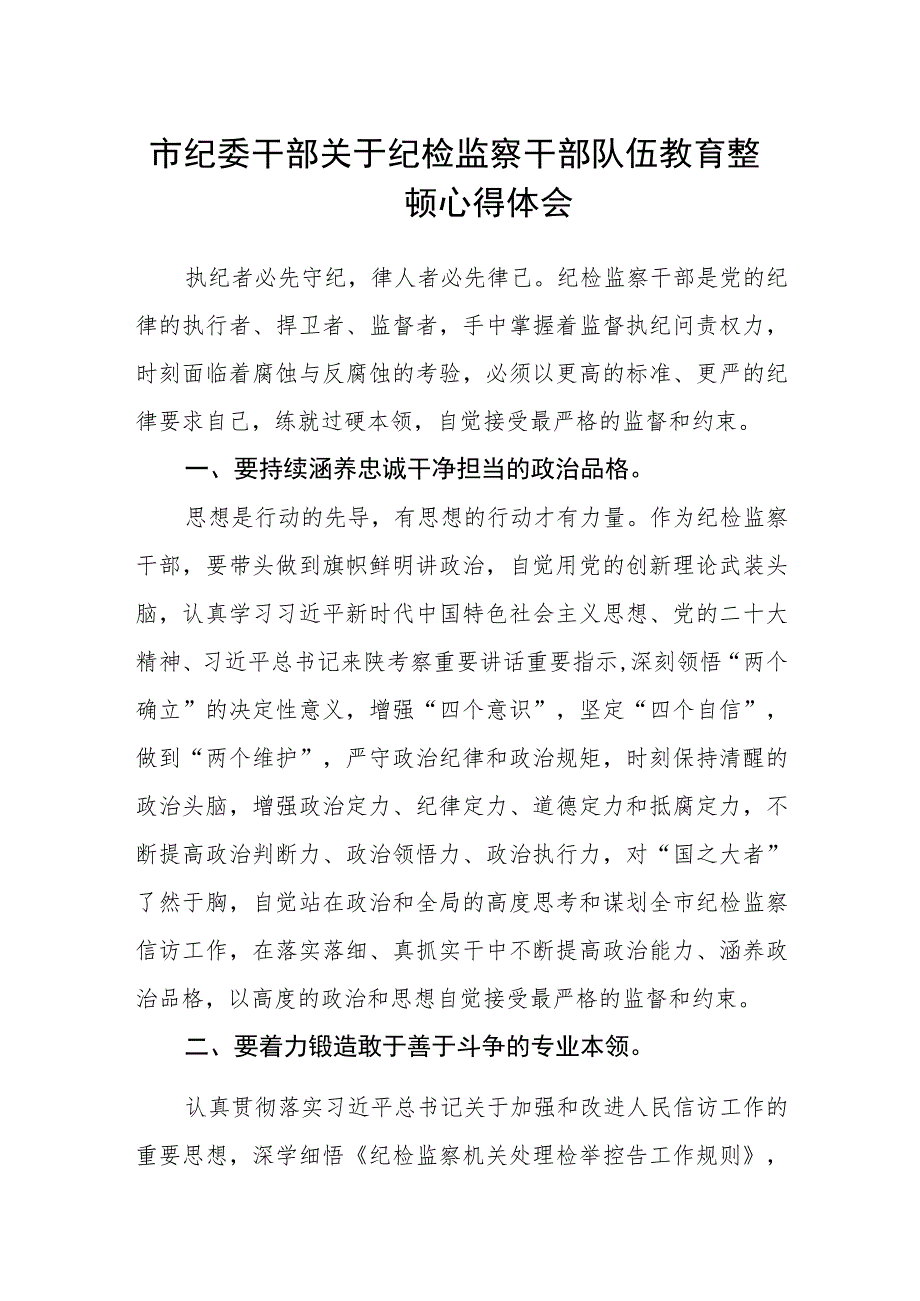 市纪委干部关于纪检监察干部队伍教育整
顿心得体会
执纪者必先守纪，律人者必先律己。纪检监察干部是党的纪
律的执行者、捍卫者、监督者，手中掌握着监督执纪问责权力，
时刻面临着腐蚀与反腐蚀的考验，必须以更高的标准、更严的纪
律要求自己，练就过硬本领，自觉接受最严格的监督和约束。
一、要持续涵养忠诚干净担当的政治品格。
思想是行动的先导，有思想的行动才有力量。作为纪检监察
干部，要带头做到旗帜鲜明讲政治，自觉用党的创新理论武装头
脑，认真学习习近平新时代中国特色社会主义思想、党的二十大
精神、习近平总书记来陕考察重要讲话重要指示,深刻领悟“两个
确立”的决定性意义，增强“四个意识”，坚定“四个自信”，
做到“两个维护”，严守政治纪律和政治规矩，时刻保持清醒的
政治头脑，增强政治定力、纪律定力、道德定力和抵腐定力，不
断提高政治判断力、政治领悟力、政治执行力，对“国之大者”
了然于胸，自觉站在政治和全局的高度思考和谋划全市纪检监察
信访工作，在落实落细、真抓实干中不断提高政治能力、涵养政
治品格，以高度的政治和思想自觉接受最严格的监督和约束。
二、要着力锻造敢于善于斗争的专业本领。
认真贯彻落实习近平总书记关于加强和改进人民信访工作的
重要思想，深学细悟《纪检监察机关处理检举控告工作规则》，